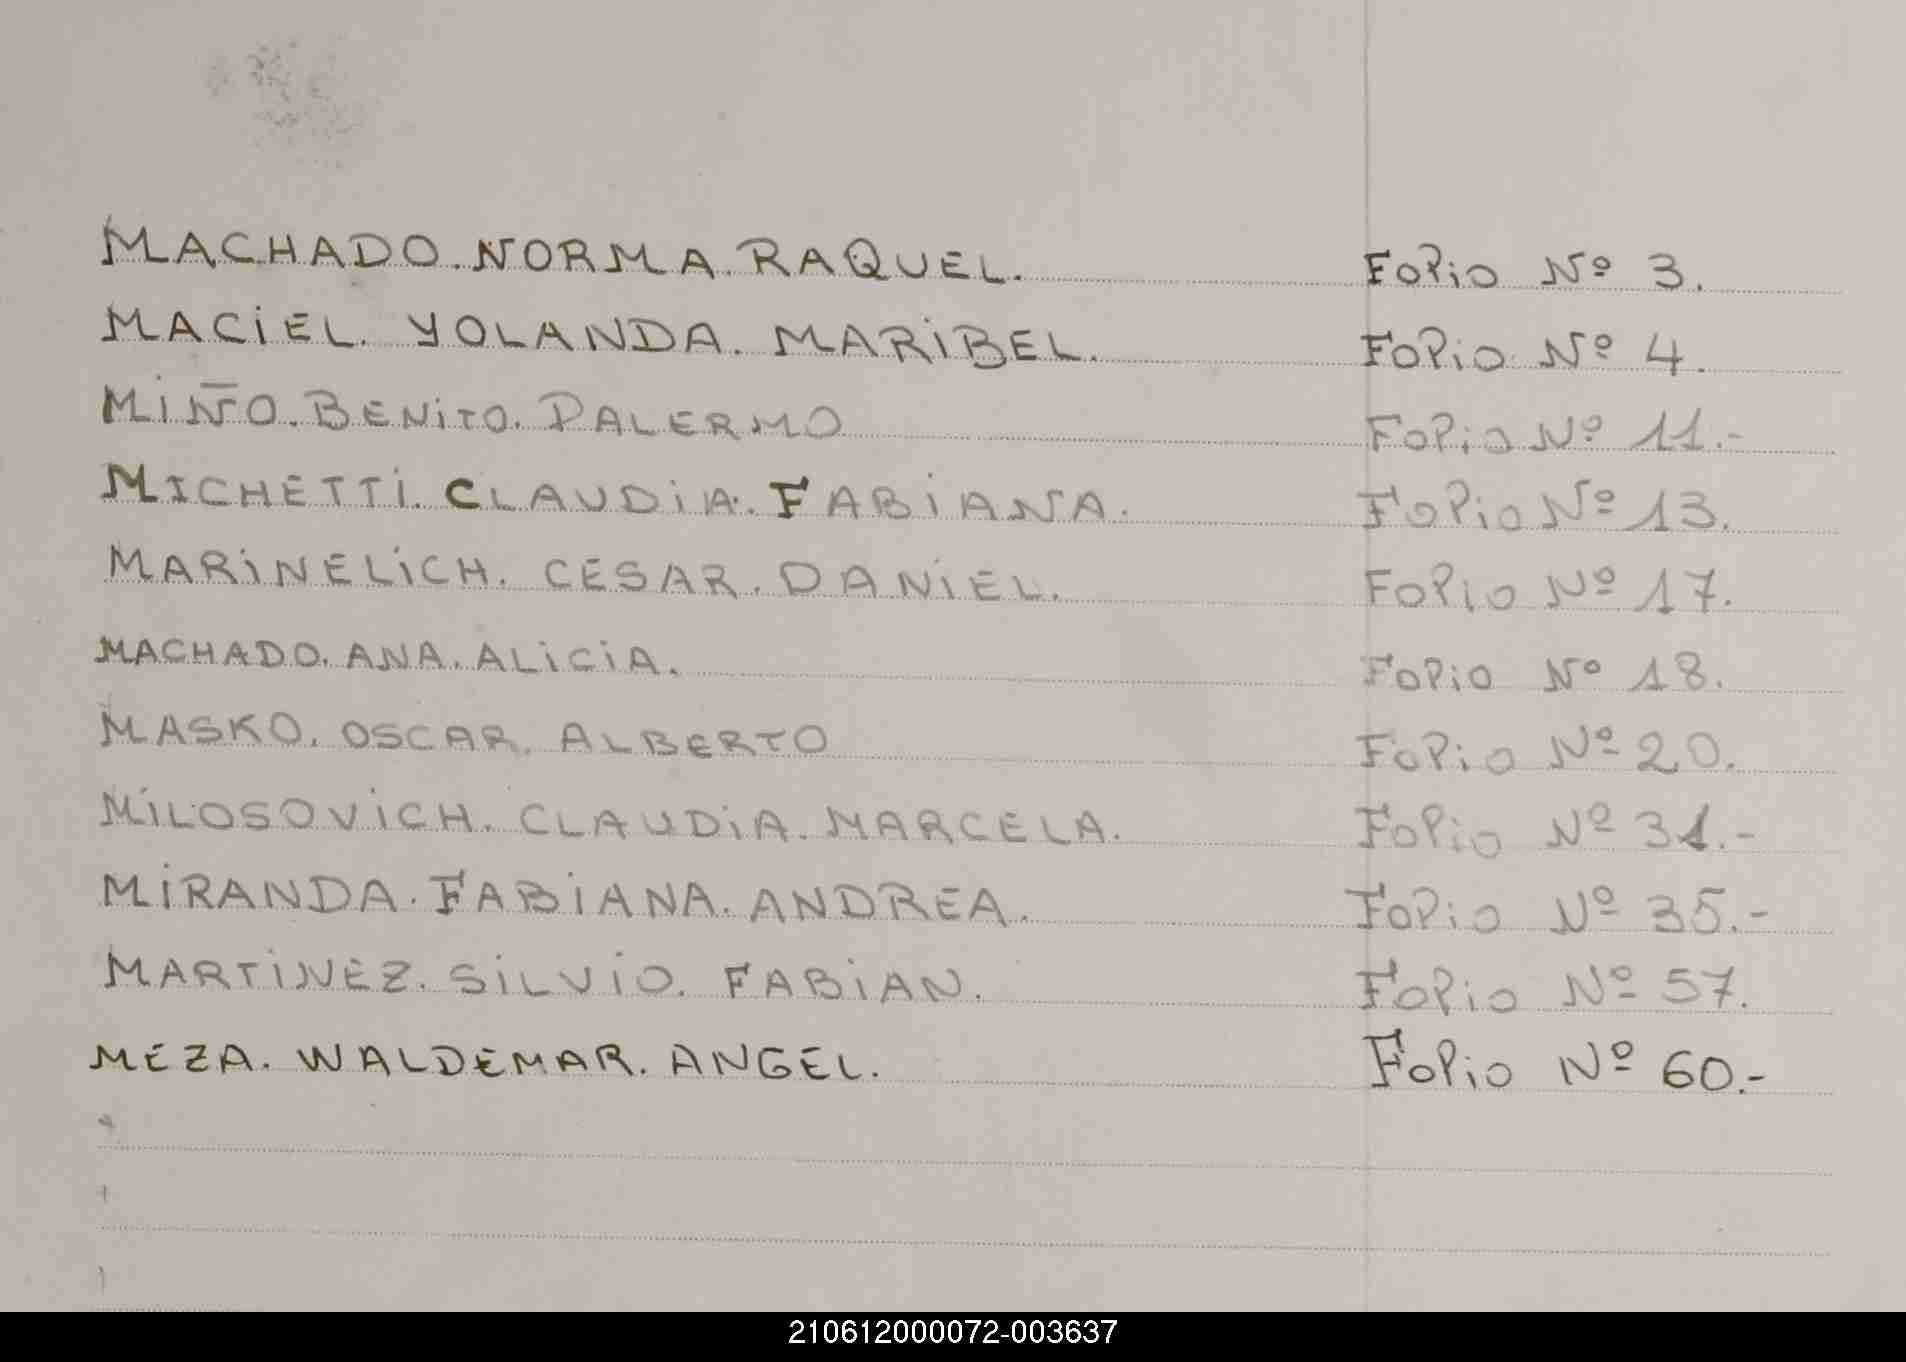 MACHADO. NORMA. RAQUEL. Folio Nº 3.
MACiEL. YOLANDA. MARiBEL. Folio Nº 4.
MiÑO. BENiTO. PALERMO Folio Nº 11.-
MICHETTi. CLAUDiA. FABiANA. Folio Nº 13.
MARiNELiCH. CESAR. DANiEL. Folio Nº 17.
MACHADO. ANA. ALiCiA. Folio Nº 18.
MASKO. OSCAR. ALBERTO Folio Nº 20.
MiLOSOViCH. CLAUDiA. MARCELA. Folio Nº 31.-
MiRANDA. FABiANA. ANDREA. Folio Nº 35.-
MARTiNEZ. SiLViO. FABiAN. Folio Nº 57.
MEZA. WALDEMAR. ANGEL. Folio Nº 60.-
210612000072-003637